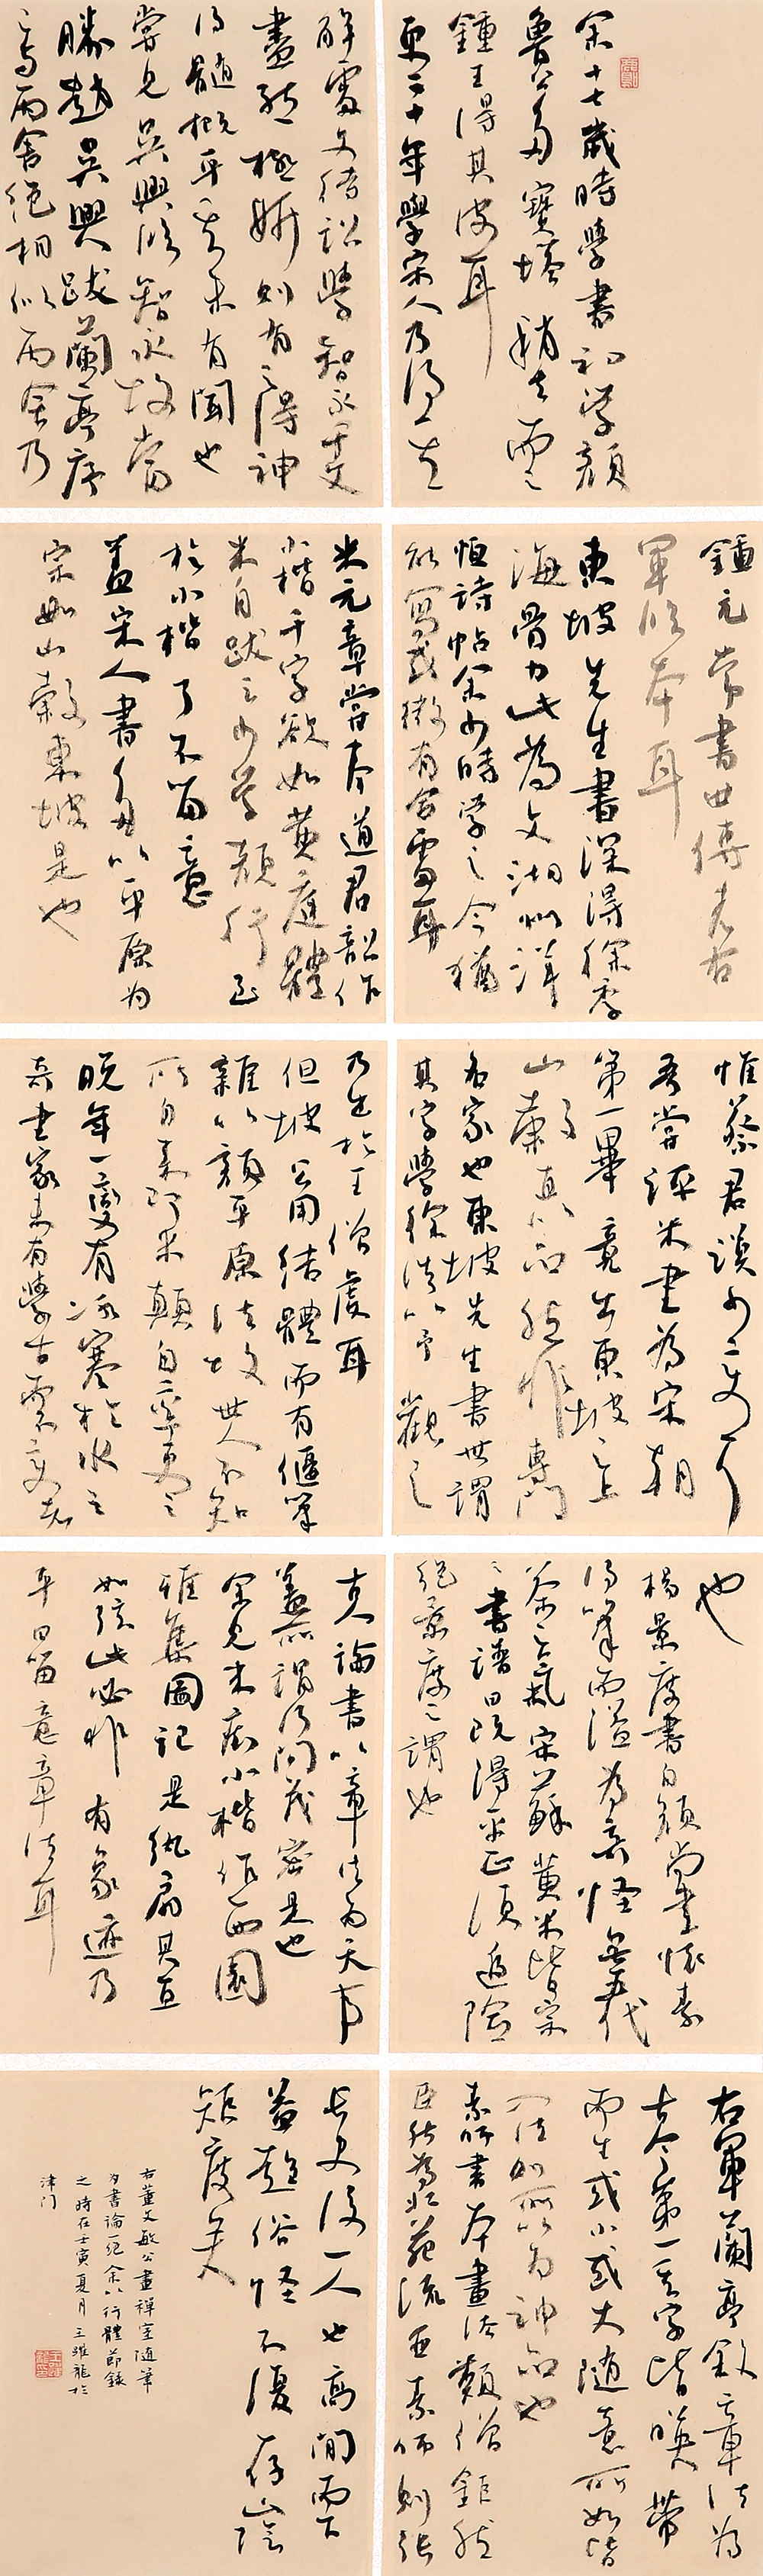 余十七歲時學書初學顏
魯公多寶塔稍去而之
鍾王得其皮耳
更二十年學宋人乃得其
解處文待詔學智永千文
盡態極妍則有之得神
得髓概乎其未有聞也
嘗見吳興臨智永故當
勝趙吳興跋蘭亭序
云與丙舍絕相似丙舍乃
鍾元常書世傳為右
軍臨本耳
東坡先生書深得徐季
海骨力此為文湖州洋
詩帖余少時學之今猶
能寫或微有合處耳
米元章嘗奉道君詔作
小楷千字欲如黃庭體
米自跋云少學顏行至
於小楷了不留意
蓋宋人書多以平原為
宗如山穀東坡是也
惟蔡君謨少變耳
吾嘗評米書為宋朝
第一畢竟出東坡之上
山穀直以品勝非專門
名家也東坡先生書世謂
其字學徐浩以予觀之
乃出於王僧虔耳
但坡公用結體而有偃筆
雜以顏平原法故世人不知
所自來即米顛自率更之
晚年一變有冰寒於水之
奇書家未有學古而不變者
也
楊景度書自顏尚書懷素
得筆而溢為奇怪無五代
茶之氣宋蘇黃米皆宗
之書譜曰既得平正須追險
絕景度之謂也
古論書以章法為一大事
蓋所謂行間茂密是也
余見米痴小楷作西園
雅集圖記是紈扇其直
如弦此必非有象迹乃
平日留意章法耳
右軍蘭亭敘章法為
古今第一其字皆映帶
而生或小或大隨意所如皆
入法則所以為神品也
素師書本畫法類僧鉅然
巨然為北苑流亞素師則張
長史後一人也高閒而下
益趨俗怪不復存山陰
矩度矣
右董文敏公畫禪室隨筆
內書論一紀余以行體節錄
之時在壬寅夏月王躍龍於
津門